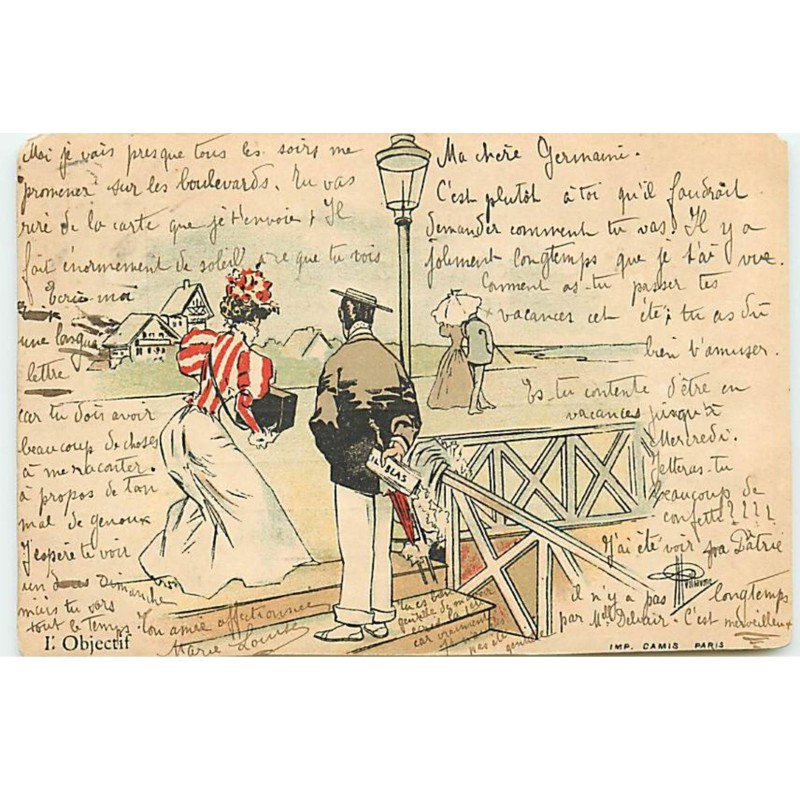 Ma chère Germaine.
C'est plutôt à toi qu'il faudrait
demander comment tu vas. Il y a
joliment longtemps que je t'ai vue.
Comment as-tu passer tes
vacances cet été; tu as dû
bien t'amuser.
Es-tu contente d'être en
vacances jusqu'à
Mercredi.
Jetteras-tu
beaucoup de
confetti????
J'ai été voir Patrie
il n'y a pas longtemps
par Mlle Delvair. C'est merveilleux
Moi je vais presque tous les soirs me
promener sur les boulevards. Tu vas
rire de la carte que je t'envoie; Il
fait énormement de soleil à ce que tu vois
Ecris-moi
une longue
lettre
car tu dois avoir
beaucoup de choses
à me raconter.
à propos de ton
mal de genoux
J'espère te voir
un Dimanche
mais tu vers
tout le temps. Ton amie affectionnée
Marie Louise
tu es bien
gentille de m'avoir
écris la 1er
car vraiment
je
pas été
gentille
GIL BLAS
L'Objectif
IMP. CAMIS PARIS